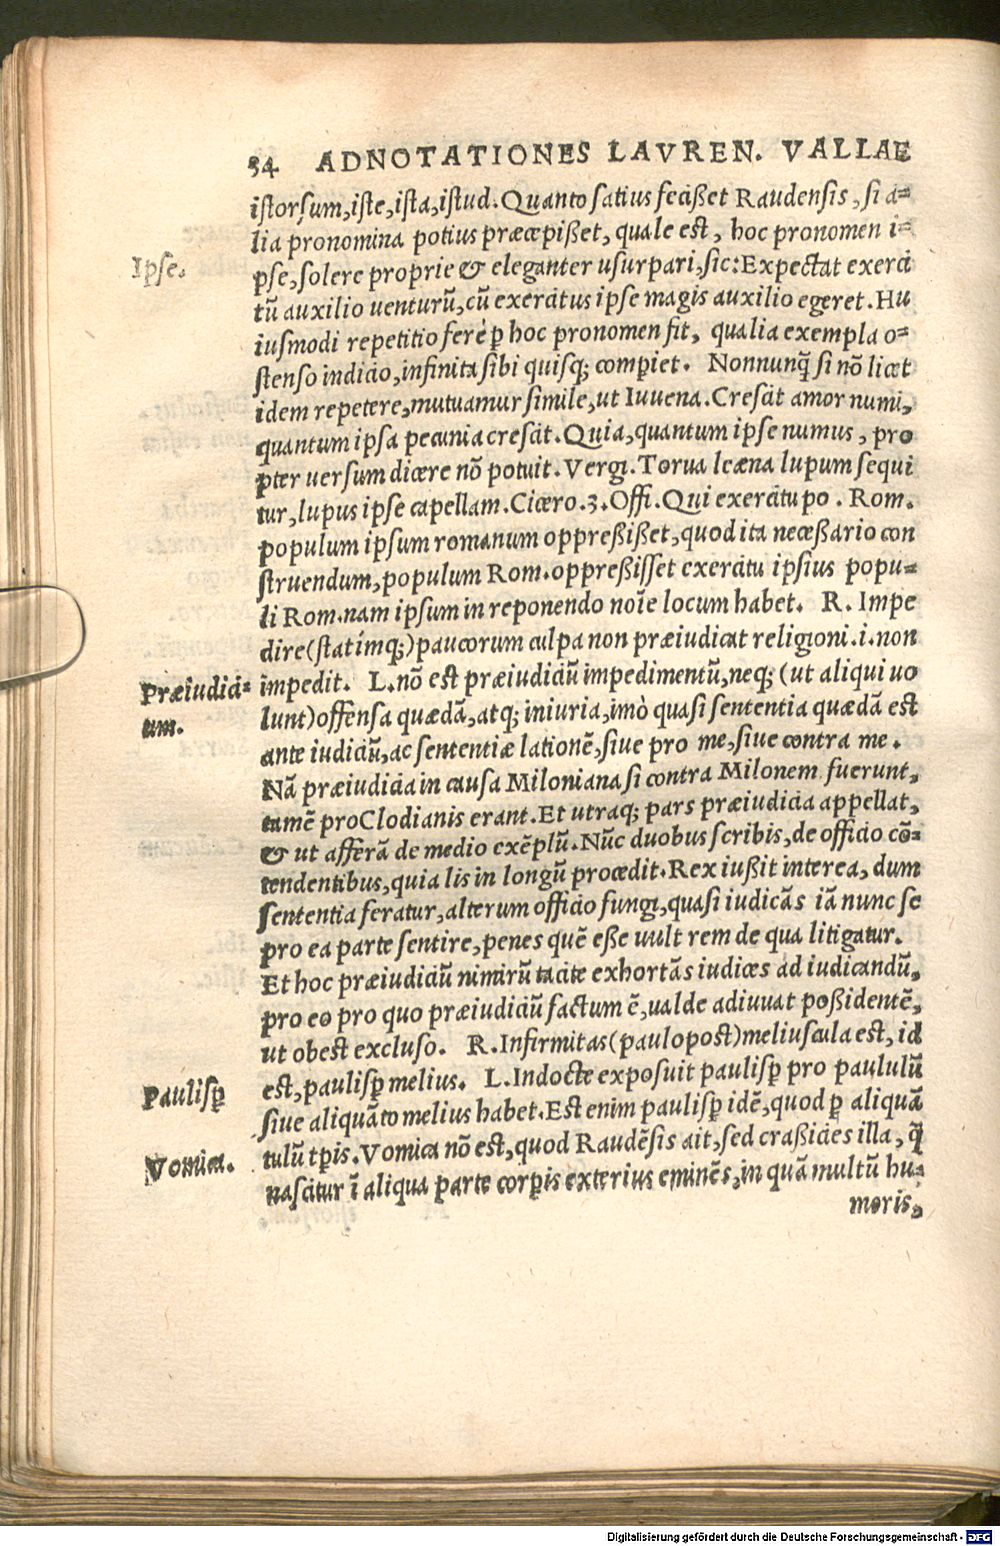 54 ADNOTATIONES LAVREN. VALLAE
istorsum, iste, ista, istud. Quanto satius fecißet Raudensis, si a=
lia pronomina potius præcepißet, quale est, hoc pronomen i=
Ipse.
pse, solere proprie & eleganter usurpari, sic: Expectat exerci
tũ auxilio venturũ, cũ exercitus ipse magis auxilio egeret. Hu
iusmodi repetitio ferè ꝑ hoc pronomen fit, qualia exempla o=
stenso indicio, infinita sibi quisq; comperiet. Nonnunq̃ si nõ licet
idem repetere, mutuamur simile, ut Iuuena. Crescit amor numi,
quantum ipsa pecunia crescit. Quia, quantum ipse numus, pro
pter uersum dicere nõ potuit. Vergi. Torua leæna lupum sequi
tur, lupus ipse capellam. Cicero. 3. Offi. Qui exercitu po. Rom.
populum ipsum romanum oppreßißet, quod ita neceßario con
struendum, populum Rom. oppreßisset exercitu ipsius popu=
li Rom. nam ipsum in reponendo noĩe locum habet. R. Impe
dire (statímq;) paucorum culpa non præiudicat religioni. i. non
Præiudici=
um.
impedit. L. nõ est præiudiciũ impedimentũ, neq; (ut aliqui uo
lunt) offensa quædã, atq; iniuria, imò quasi sententia quædã est
ante iudiciũ, ac sententiæ lationẽ, siue pro me, siue contra me.
Nã præiudicia in causa Miloniana si contra Milonem fuerunt,
tamẽ pro Clodianis erant. Et utraq; pars præiudicia appellat,
& ut afferã de medio exẽplũ. Nũc duobus scribis, de officio cõ=
tendentibus, quia lis in longũ procedit. Rex iußit interea, dum
sententia feratur, alterum officio fungi, quasi iudicãs iã nunc se
pro ea parte sentire, penes quẽ eße uult rem de qua litigatur.
Et hoc præiudiciũ nimirũ tacite exhortãs iudices ad iudicandũ,
pro eo pro quo præiudiciũ factum ẽ, ualde adiuuat poßidentẽ,
ut obest excluso. R. Infirmitas (paulopost) meliuscula est, id
Paulisꝑ
est, paulisꝑ melius. L. Indocte exposuit paulisꝑ pro paululũ
siue aliquãto melius habet. Est enim paulisꝑ idẽ, quod ꝑ aliquã
Vomica.
tulũ tꝑis. Vomica nõ est, quod Raudẽsis ait, sed craßicies illa, q̃
nascitur ĩ aliqua ꝑarte corꝑis exterius eminẽs, in quã multũ hu=
moris,
Digitalisierung gefördert durch die Deutsche Forschungsgemeinschaft - DFG